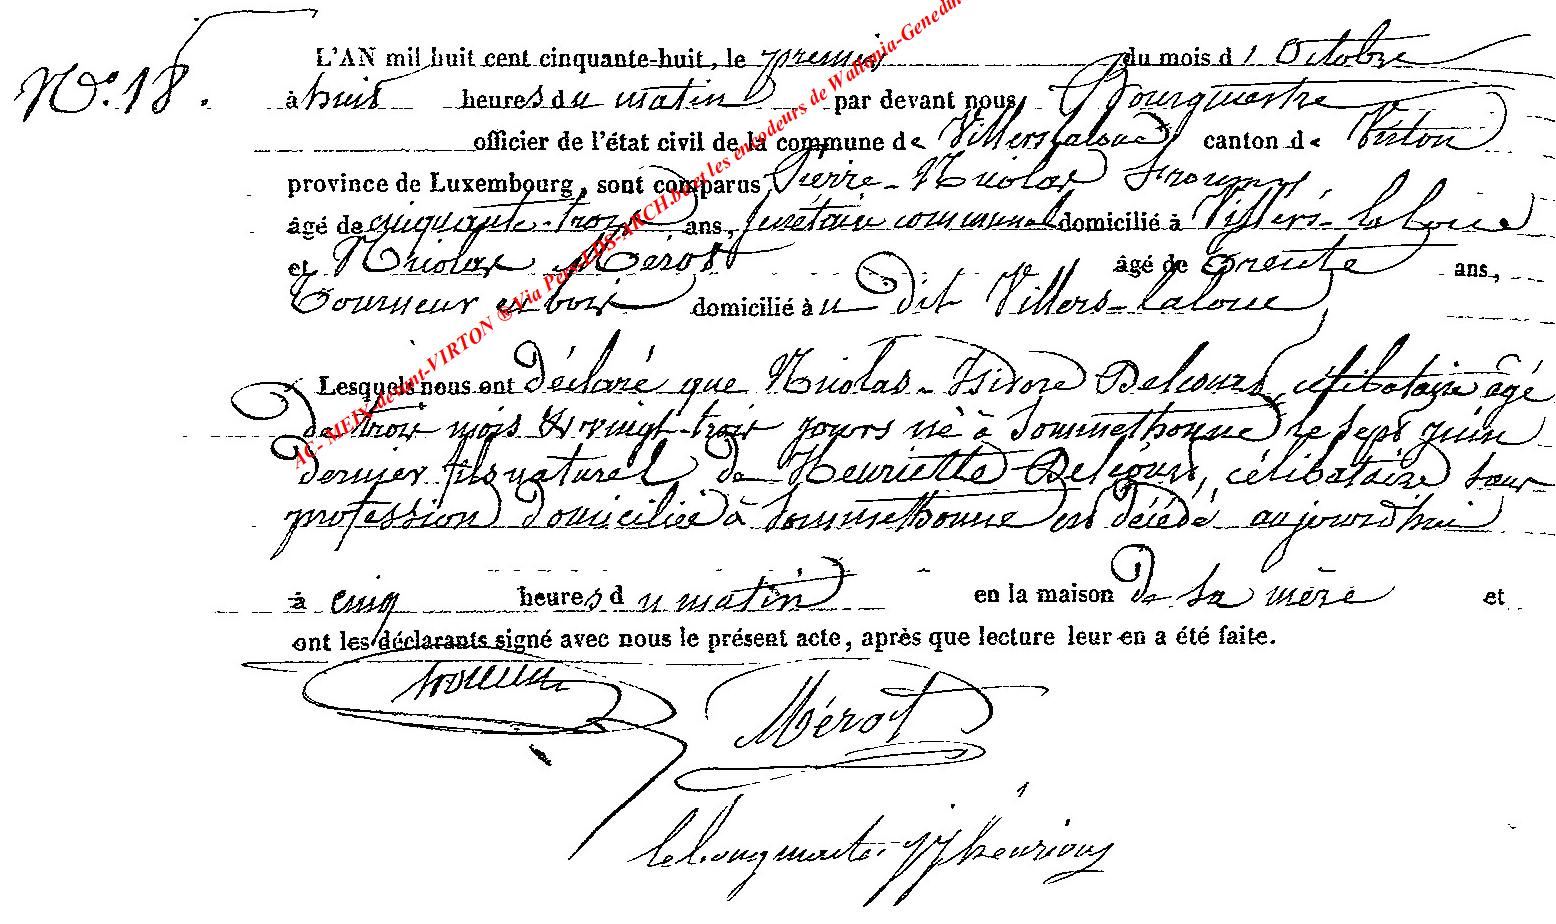 N°. 18.
L'AN mil huit cent cinquante-huit, le premier du mois d' Octobre
à huit heures du matin par devant nous, Bourguestre
officier de l'état civil de la commune de Villers laloue canton de Virton
province de Luxembourg, sont comparus Pierre-Nicolas
âgé de cinquante-trois ans, secrétaire communal domicilié à Villers-laloue
et Nicolas Mérot âgé de trente ans,
Tourneur en bois domicilié à u dit Villers-laloue
Lesquels nous ont déclaré que Nicolas-Isidore Delcourt, célibataire âgé
De trois mois & vingt-trois jours né à Sommethonne le sept juin
dernier fils naturel de Henriette Delcourt, célibataire sans
profession domiciliée à Sommethonne est décédé aujourd'hui
à cinq heures du matin en la maison De sa mère et
ont les déclarants signé avec nous le présent acte, après que lecture leur en a été faite.
Mérot
AC- MEIX-devant-VIRTON ® Via Pers-EDS-ARCH.be et les encodeurs de Wallonia-Genedin